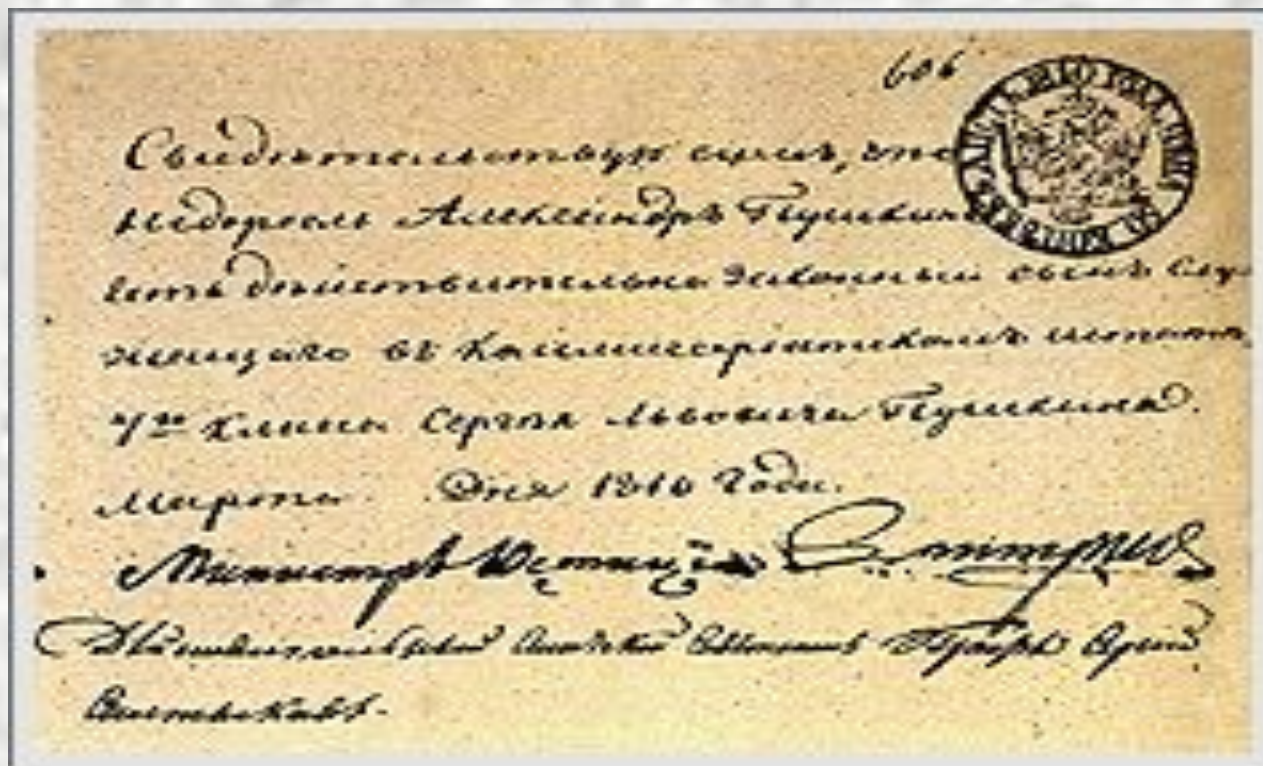 606
Свидѣтельствую симъ, что
недоросль Александръ Пушкинъ
есть дѣйствительно законный сынъ слу-
жащаго въ Коммисаріатскомъ штатѣ
7го класса Сергѣя Львовича Пушкина.
Марта Дня 1810 Года.
Министръ Юстиціи Дмитріевъ
Дѣйствительный Статскій Совѣтникъ Графъ